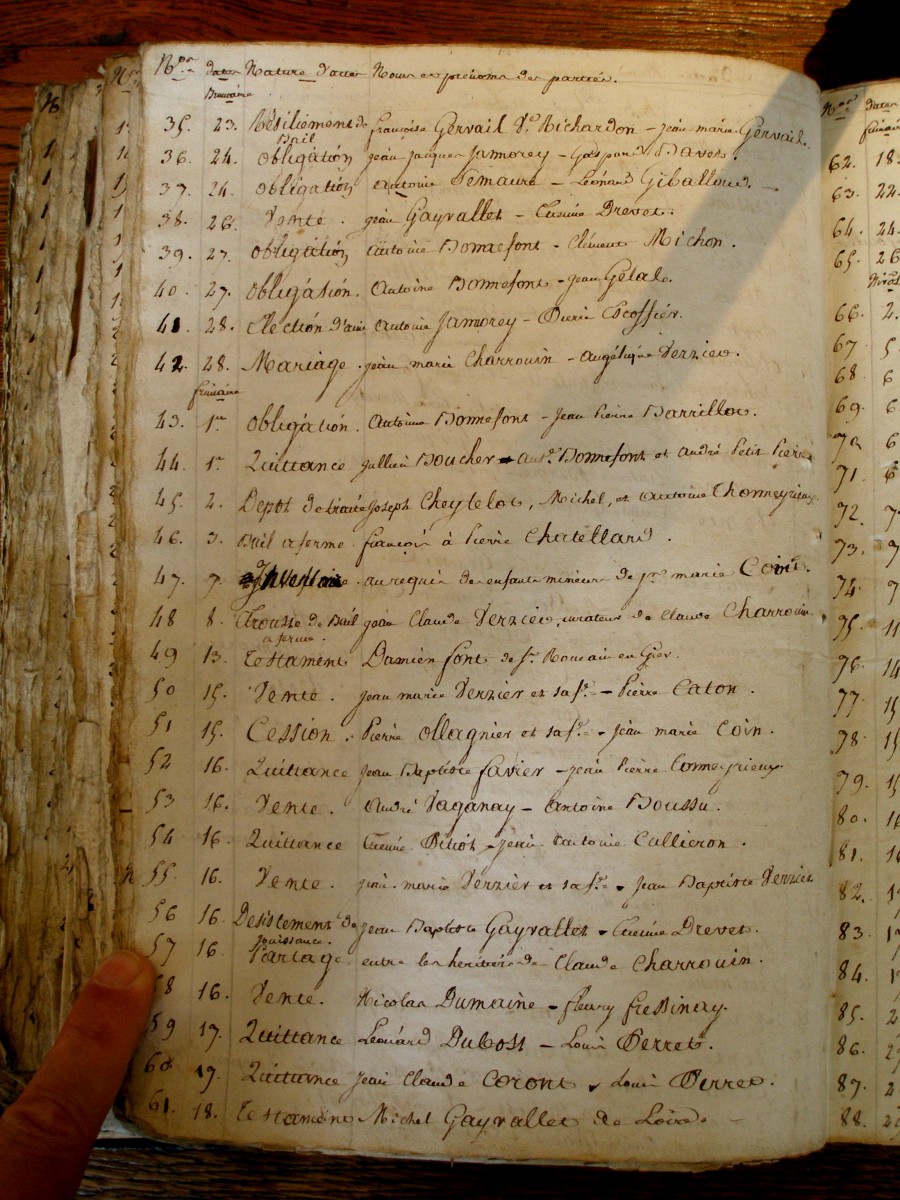 Nos dates Nature d'actes Noms et prénoms des parties.
Brumaire
35. 23. Résiliement de françoise Gervail Ve Richardon - jean marie Gervail.
Bail
36. 24. obligation jean jacques Jamorey - Gaspard Bavet.
37. 24. obligation antoine Semaure - Léonard Giballoud.
38. 26. Vente. jean Gayvallet - Etienne Drevet.
39. 27. obligation antoine Bonnefont - Clément Michon.
40. 27. obligation. Antoine Bonnefont - jean Getale.
41. 28. Election d'ami antoine Jamorey - Pierre Escoffier.
42. 28. Mariage. jean marie Charrouin - angélique Verzier.
frimaire
43. 1er obligation. Antoine Bonnefont - Jean Pierre Barrillot.
44. 1er Quittance jullien Boucher - ant.e Bonnefont et andré Petit Pierre
45. 2. Depot de traité joseph Cheytelot, Michel, et antoine Thomeyrieux.
46. 3. Bail a ferme. françois à Pierre Chatellard.
47. 7. Inventaire. au requis des enfants mineurs de jn marie Coin.
48 8. Trousse de Bail jean Claude Verzier, curateur de Claude Charrouin
a ferme.
49 13. Testament Damien font de St Romain en Gier.
50 15. Vente. jean marie Verzier et sa fe. - Pierre Caton.
51 15. Cession. Pierre ollagnier et sa fe. - jean marie Coin.
52 16. Quittance jean Baptiste favier - jean Pierre Cormeyrieux.
53 16. Vente. André Vaganay - antoine Boussu.
54 16. Quittance Etienne Pitiot - jean antoine Cullieron.
55 16. Vente. jean marie Verzier et sa fe. - Jean Baptiste Verzier
56 16. Desistement de jean Baptiste Gayvallet - Etienne Drevet.
jouissance.
57 16 Partage entre les heritiers de Claude Charrouin.
58 16. Vente. Nicolas Dumaine - fleury fressinay.
59 17. Quittance Léonard Dubost - Louis Perret.
60. 17. Quittance jean Claude Coront - Louis Perret.
61. 18. Testament Michel Gayvallet de Loire.
Nos dates
frimaire
62. 18.
63. 22.
64. 24.
65. 26
66. 2.
67. 5
68. 6
69. 6
70 6
71. 6
72. 7
73. 9
74. 9
75. 11
76. 14
77. 15
78. 15
79. 15
80. 16
81. 16
82.
83.
84.
85. 2
86.
87. 2
88. 2